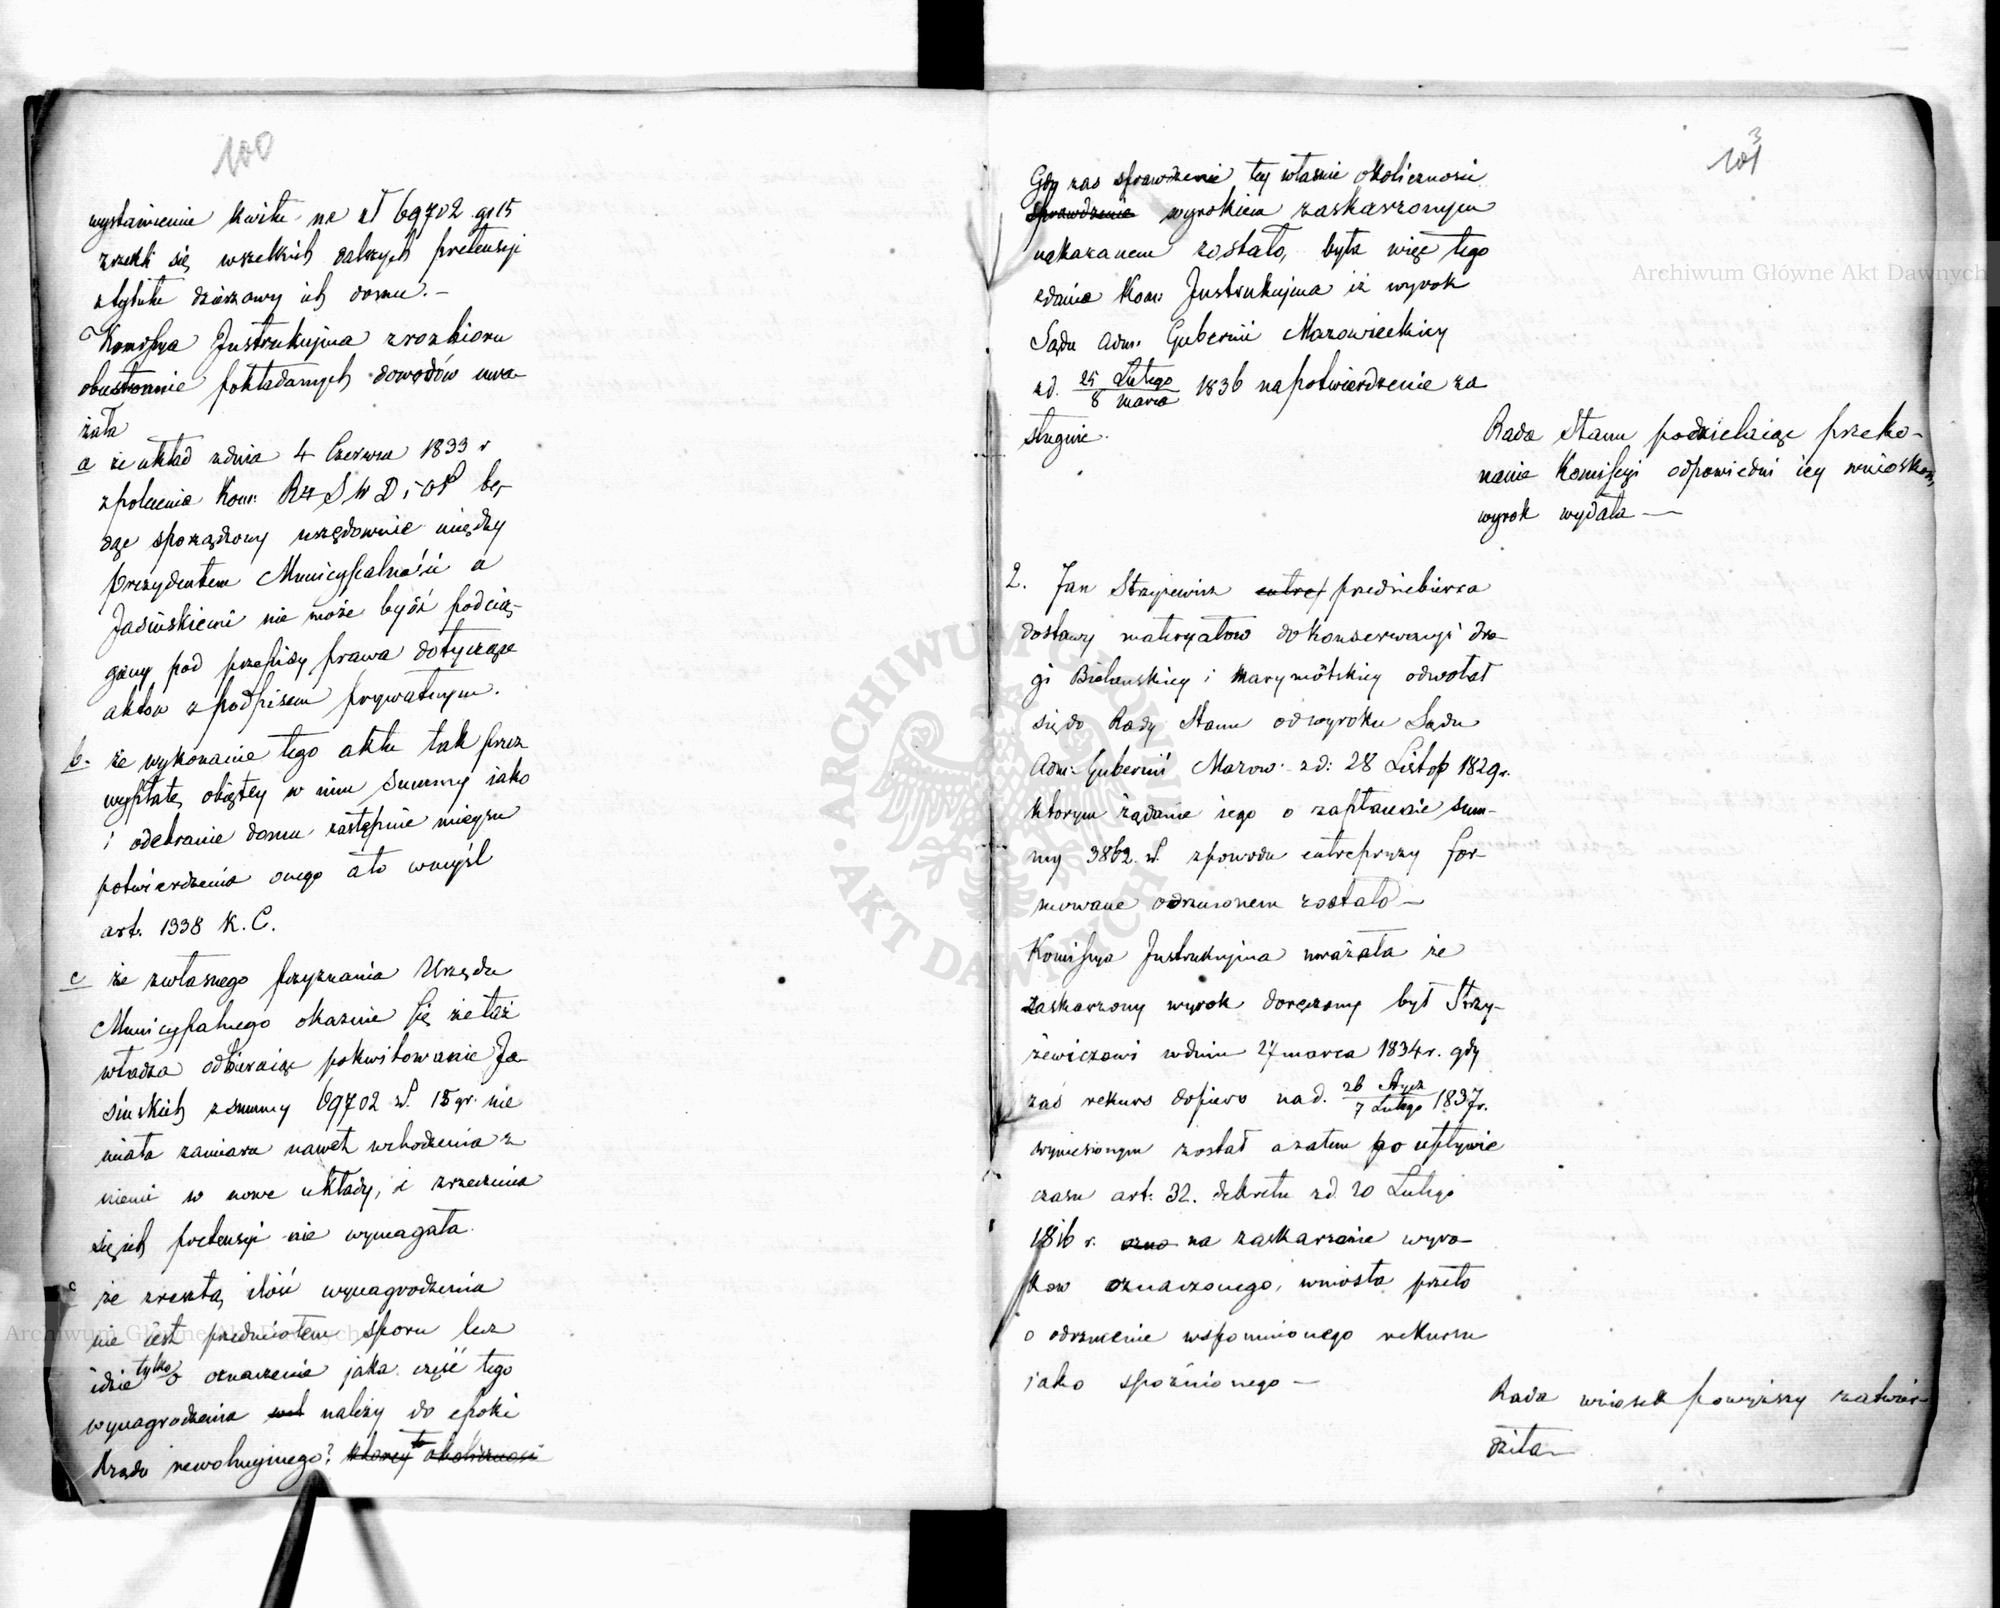 100
wystawienie kwitu na zł 69702 gr 15
zrzekli się wszelkich dalszych pretensyi
z tytułu dzierzawy ich domu. –
Kommissya Instrukcyjna z rozbioru
obustronnie pokładanych dowodów uwa-
żała
a że układ z dnia 4 Czerwca 1833 r
z polecenia Kom: Rz S W D i OP bę-
dąc sporządzony urzędownie między
Prezydentem Municypalności a
Jasińskiemi nie może bydź podcią-
gany pod przepisy prawa dotyczące
aktów z podpisem prywatnym.
b. że wykonanie tego aktu tak przez
wypłatę obiętey w nim Summy iako
i odebranie domu zastępuie mieysce
potwierdzenia onego a to w myśl
art. 1338 K. C.
c że z własnego przyznania Urzędu
Municypalnego okazuie się że też
władza odbieraiąc pokwitowanie Ja-
sińskich z summy 69702 zł. 15 gr. nie
miała zamiaru nawet wchodzenia z
niemi w nowe układy, i zrzeczenia
się ich pretensyi nie wymagała.
że zresztą ilość wynagrodzenia
nie iest przedmiotem sporu lecz
idzie tylko o oznaczenie jaka część tego
wynagrodzenia należy do epoki
Rządu rewolucyinego? którey to okoliczności
101
3
Gdy zas sprawdzenie tey własnie okoliczności
sprawdzenie wyrokiem zaskarzonym
nakazanem zostało, była więc tego
zdania Kom: Instrukcyjna iż wyrok
Sądu Adm. Gubernii Mazowieckiey
z d. 25 Lutego / 8 marca 1836 na potwierdzenie za
sługuie.
Rada Stanu podzielaiąc przeko-
nanie Komissyi odpowiedni iey wnioskom,
wyrok wydała —
2. Jan Strzyżewicz entrep przedsiebierca
dostawy materyałów do konserwacyi dro-
gi Bielanskiey i Marymōtskiey odwołał
się do Rady Stanu od wyroku Sądu
Adm: Gubernii Mazow: z d: 28 Listop 1829 r.
ktorym żądanie iego o zapłacenie sum-
my 3862. zł. z powodu entrepryzy for-
mowane odrzuconem zostało —
Komissya Instrukcyjna uważała że
zaskarzony wyrok doręczony był Strzy-
żewiczowi w dniu 27 marca 1834 r. gdy
zaś rekurs dopiero na d. 26 Stycz / 7 Lutego 1837 r.
wyniesionym został a zatem po upływie
czasu art: 32. dekretu z d. 20 Lutego
1816 r. ozna na zaskarzenie wyro-
kow oznaczonego, wniosła przeto
o odrzucenie wspomnionego rekursu
jako spoźnionego —
Rada wniosek powyższy zatwier-
dziła —
Archiwum Główne Akt Dawnych
Archiwum Główne Akt Dawnych
ARCHIWUM GŁÓWNE · AKT DAWNYCH ·